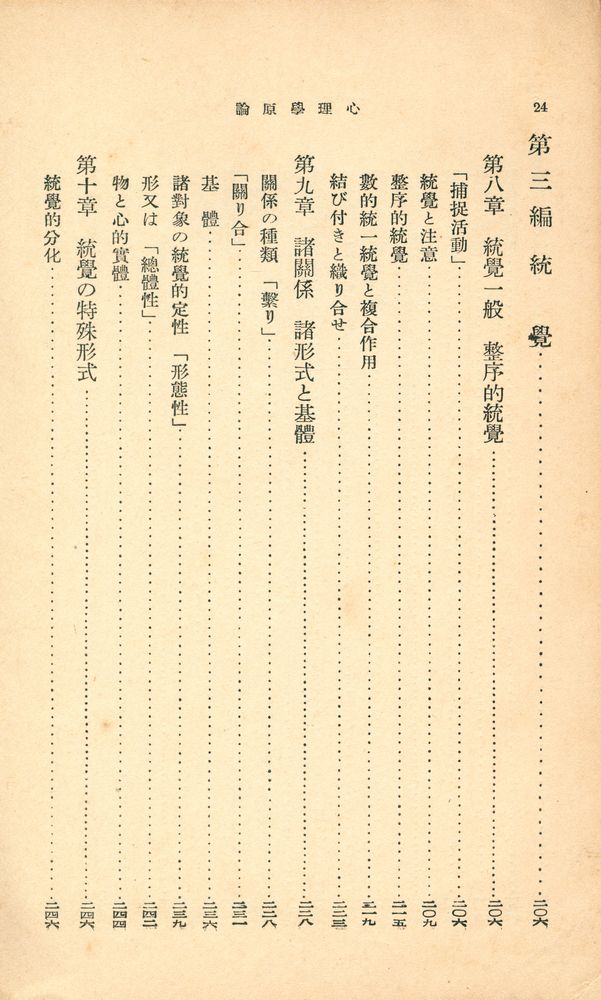 24
論原學理心
第三編 統 覺……二〇六
第八章 統覺一般 整序的統覺……二〇六
「捕捉活動」……二〇六
統覺と注意……二〇九
整序的統覺……二一五
數的統一統覺と複合作用……二一九
結び付きと織り合せ……二二三
第九章 諸關係 諸形式と基體……二二八
關係の種類 「繫り」……二二八
「關り合」……二三一
基 體……二三六
諸對象の統覺的定性 「形態性」……二三九
形又は 「總體性」……二四二
物と心的實體……二四四
第十章 統覺の特殊形式……二四六
統覺的分化……二四六